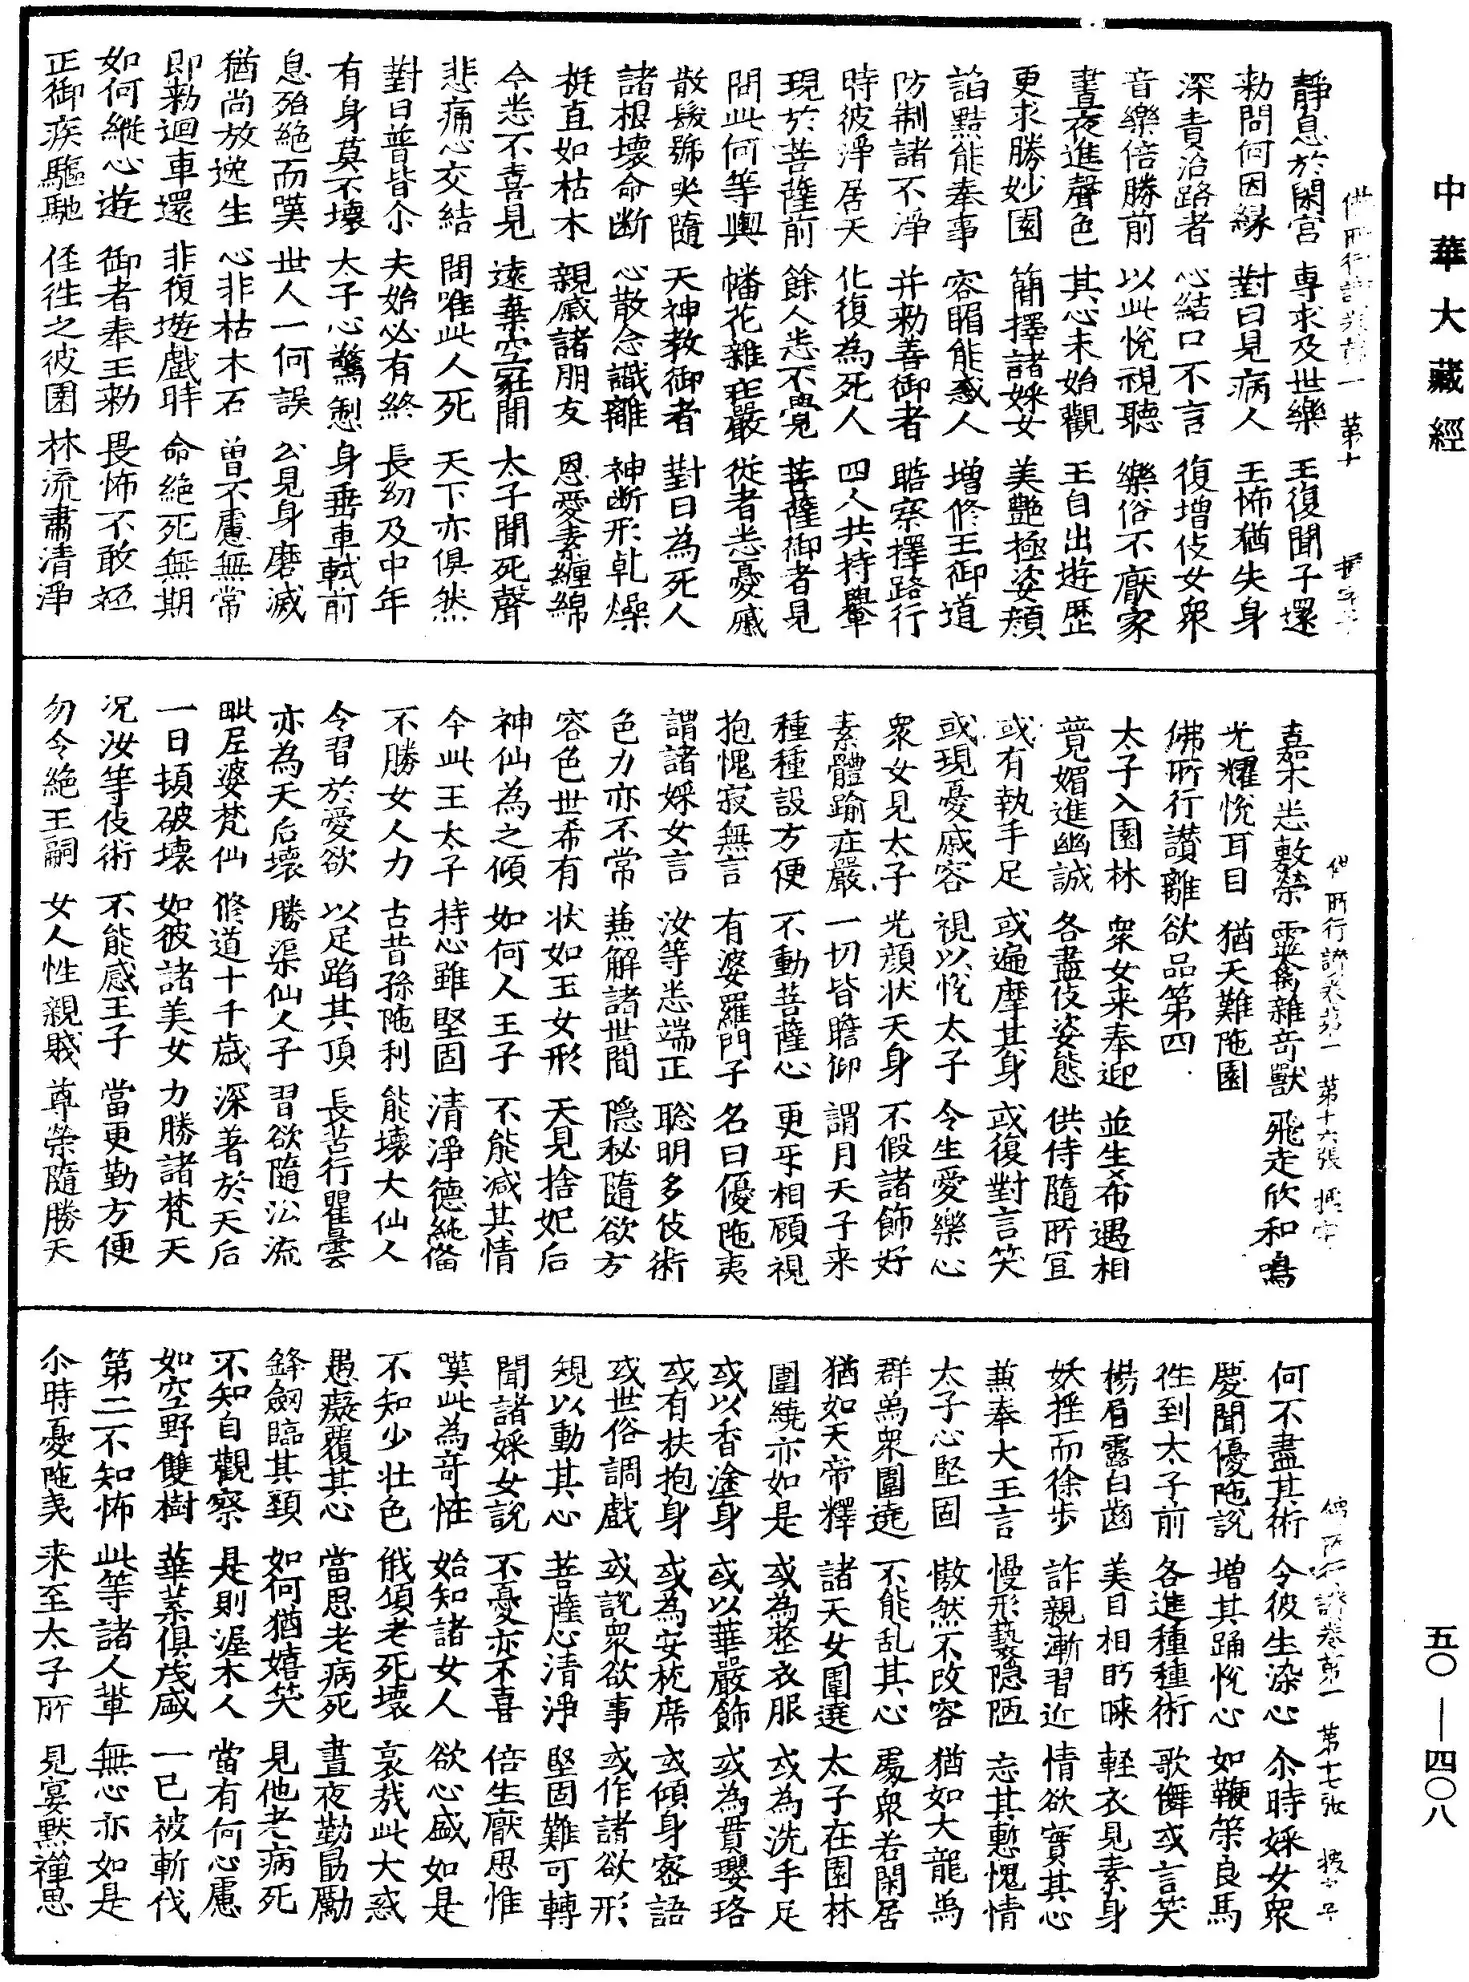 中華大藏經
靜息於閑宮 專求及世樂 王復聞子還
勑問何因緣 對曰見病人 王怖猶失身
深責治路者 心結口不言 復增伎女衆
音樂倍勝前 以此悅視聽 樂俗不猒家
晝夜進聲色 其心未始觀 王自出遊歷
更求勝妙園 簡擇諸婇女 美艷極姿顏
諂黠能奉事 容媚能惑人 增修王御道
防制諸不淨 并勑善御者 瞻察擇路行
時彼淨居天 化復為死人 四人共持轝
現於菩薩前 餘人悉不覺 菩薩御者見
問此何等轝 幡花雜莊嚴 從者悉憂慼
散髮號哭隨 天神教御者 對曰為死人
諸根壞命断 心散念識離 神断形乹燥
挺直如枯木 親戚諸朋友 恩愛素纏綿
今悉不喜見 遠棄空冢間 太子聞死聲
悲痛心交結 問唯此人死 天下亦俱然
對曰普皆尒 夫始必有終 長幼及中年
有身莫不壞 太子心驚怛 身垂車軾前
息殆絕而嘆 世人一何誤 公見身磨滅
猶尚放逸生 心非枯木石 曾不慮無常
即勑迴車還 非復遊戲時 命絕死無期
如何縱心遊 御者奉王勑 畏怖不敢迴
正御疾驅馳 徑往之彼園 林流肅清淨
嘉木悉敷榮 靈禽雜竒獸 飛走欣和鳴
光耀悅耳目 猶天難陁園
佛所行讃離欲品第四
太子入園林 衆女来奉迎 並生希遇相
竟媚進幽誠 各盡伎姿態 供侍隨所宜
或有執手足 或遍摩其身 或復對言笑
或現憂戚容 視以悅太子 令生愛樂心
衆女見太子 光顏状天身 不假諸飾好
素體踰莊嚴 一切皆瞻仰 謂月天子来
種種設方便 不動菩薩心 更牙相顧視
抱愧寂無言 有婆羅門子 名曰優陁夷
謂諸婇女言 汝等悉端正 聡明多伎術
色力亦不常 兼解諸世間 隠秘隨欲方
容色世希有 状如玉女形 天見捨妃后
神仙為之傾 如何人王子 不能减其情
今此王太子 持心雖堅固 清淨德純俻
不勝女人力 古昔孫陁利 能壞大仙人
令習於愛欲 以足蹈其頂 長苦行瞿曇
亦為天后壞 勝渠仙人子 習欲隨㳂流
毗尸婆梵仙 修道十千歲 深著於天后
一日頓破壞 如彼諸美女 力勝諸梵天
况汝等伎術 不能感王子 當更勤方便
勿令絕王嗣 女人性親賤 尊榮隨勝天
何不盡其術 令彼生染心 尒時婇女衆
慶聞優陁說 增其踊悅心 如鞭策良馬
徃到太子前 各進種種術 歌儛或言笑
楊眉露白齒 美目相眄睞 軽衣見素身
妖揺而徐步 詐親漸習近 情欲實其心
兼奉大王言 慢形褻隠陋 忘其慙愧情
太子心堅固 慠然不改容 猶如大龍為
群為衆圍遶 不能乱其心 處衆若閑居
猶如天帝釋 諸天女圍遶 太子在園林
圍繞亦如是 或為整衣服 或為洗手足
或以香塗身 或以華嚴飾 或為貫瓔珞
或有扶抱身 或為安枕席 或傾身密語
或世俗調戲 或說衆欲事 或作諸欲形
規以動其心 菩薩心清淨 堅固難可轉
聞諸婇女說 不憂亦不喜 倍生厭思惟
嘆此為竒恠 始知諸女人 欲心盛如是
不知少壮色 俄頃老死壞 哀㢤此大惑
愚癡覆其心 當思老病死 晝夜勤勗勵
鋒劔臨其頸 如何猶嬉笑 見他老病死
不知自觀察 是則渥木人 當有何心慮
如空野雙樹 華葉俱茂盛 一已被斬伐
第二不知怖 此等諸人輩 無心亦如是
尒時憂陁夷 来至太子所 見宴黙禅思
五〇—四〇八